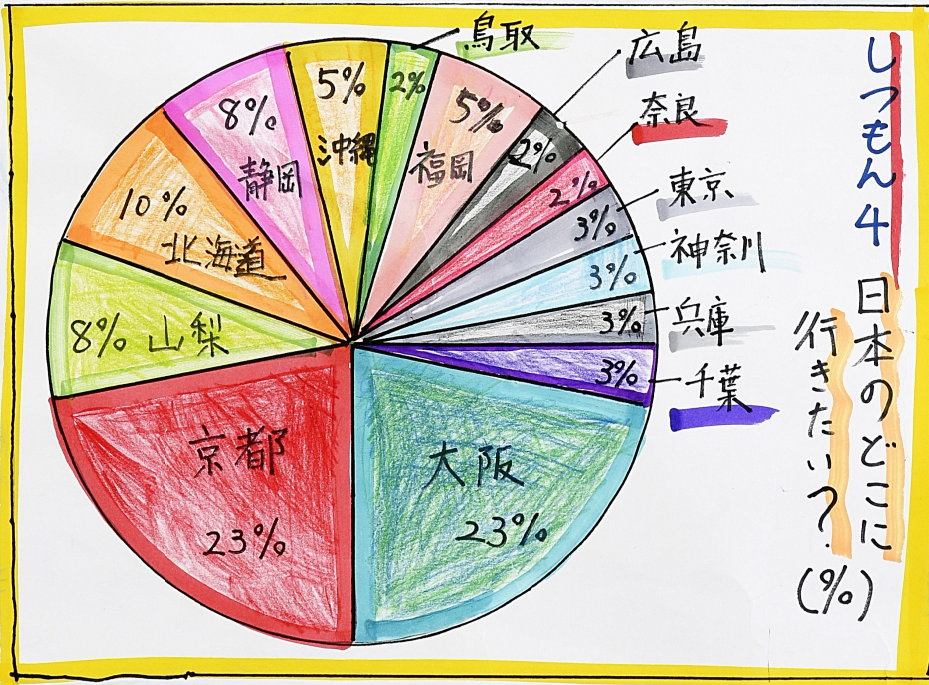 しつもん4
日本のどこに
行きたい?
(%)
鳥取
2%
福岡
5%
広島
2%
奈良
2%
東京
3%
神奈川
3%
兵庫
3%
千葉
3%
大阪
23%
京都
23%
8% 山梨
10%
北海道
8%
静岡
5%
沖縄